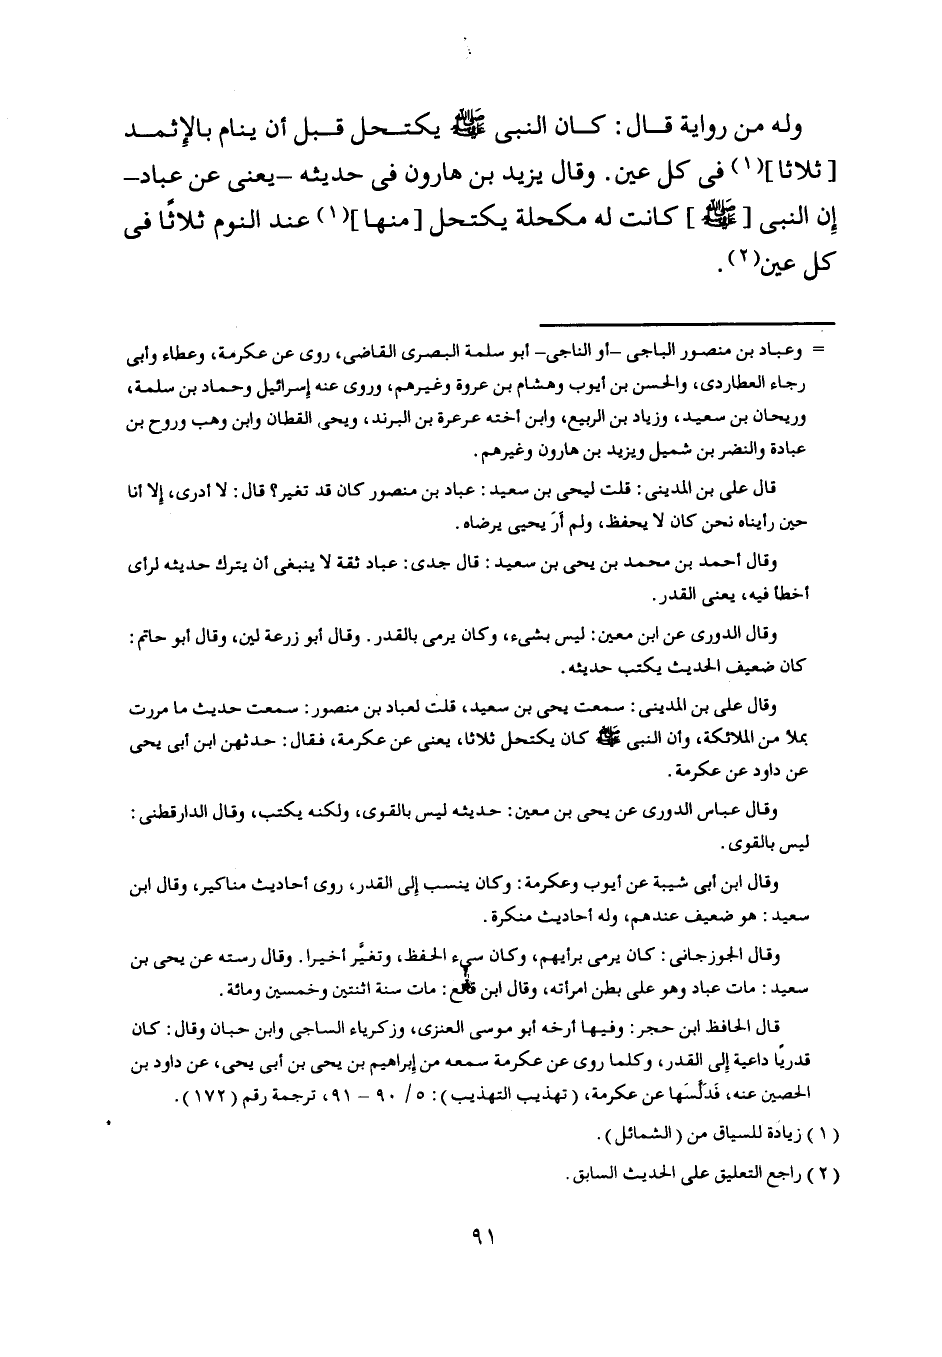 وله من رواية قال: كان النبى ﷺ يكتحل قبل أن ينام بالإثمد
[ثلاثا](١) فى كل عين. وقال يزيد بن هارون فى حديثه –يعنى عن عباد–
إن النبى [ﷺ] كانت له مكحلة يكتحل [منها](١) عند النوم ثلاثًا فى
كل عين(٢).
= وعباد بن منصور الباجى –أو الناجى– أبو سلمة البصرى القاضى، روى عن عكرمة، وعطاء وأبى
رجاء العطاردى، والحسن بن أيوب وهشام بن عروة وغيرهم، وروى عنه إسرائيل وحماد بن سلمة،
وريحان بن سعيد، وزياد بن الربيع، وابن أخته عرعرة بن البرند، ويحى القطان وابن وهب وروح بن
عبادة والنضر بن شميل ويزيد بن هارون وغيرهم.
قال على بن المدينى: قلت ليحى بن سعيد: عباد بن منصور كان قد تغير؟ قال: لا أدرى، إلا أنا
حين رأيناه نحن كان لا يحفظ، ولم أرَ يحيى يرضاه.
وقال أحمد بن محمد بن يحى بن سعيد: قال جدى: عباد ثقة لا ينبغى أن يترك حديثه لرأى
أخطأ فيه، يعنى القدر.
وقال الدورى عن ابن معين: ليس بشىء، وكان يرمى بالقدر. وقال أبو زرعة لين، وقال أبو حاتم:
كان ضعيف الحديث يكتب حديثه.
وقال على بن المدينى: سمعت يحى بن سعيد، قلت لعباد بن منصور: سمعت حديث ما مررت
بملأ من الملائكة، وأن النبى ﷺ كان يكتحل ثلاثا، يعنى عن عكرمة، فقال: حدثهن ابن أبى يحى
عن داود عن عكرمة.
وقال عباس الدورى عن يحى بن معين: حديثه ليس بالقوى، ولكنه يكتب، وقال الدارقطنى:
ليس بالقوى.
وقال ابن أبى شيبة عن أيوب وعكرمة: وكان ينسب إلى القدر، روى أحاديث مناكير، وقال ابن
سعيد: هو ضعيف عندهم، وله أحاديث منكرة.
وقال الجوزجانى: كان يرمى برأيهم، وكان سىء الحفظ، وتغيَّر أخيرا. وقال رسته عن يحى بن
سعيد: مات عباد وهو على بطن امرأته، وقال ابن قانع: مات سنة اثنتين وخمسين ومائة.
قال الحافظ ابن حجر: وفيها أرخه أبو موسى العنزى، وزكرياء الساجى وابن حبان وقال: كان
قدريًا داعية إلى القدر، وكلما روى عن عكرمة سمعه من إبراهيم بن يحى بن أبى يحى، عن داود بن
الحصين عنه، فَدَلَّسَها عن عكرمة، (تهذيب التهذيب): ٥/ ٩٠ – ٩١، ترجمة رقم (١٧٢).
(١) زيادة للسياق من (الشمائل).
(٢) راجع التعليق على الحديث السابق.
٩١